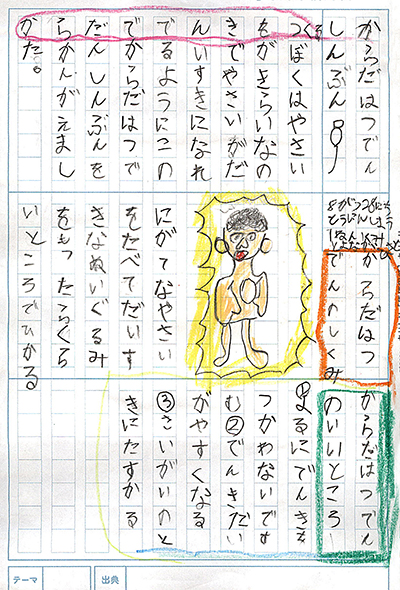 からだはつでん
しんぶん
つくる
ぼくはやさい
をがきらいなの
きでやさいがだ
んいすきになれ
でるようにこの
でからだはつで
だんしんぶんを
らかんがえまし
かた。
8がつ28にち
からだはつ
でんのしくみ
にがてなやさい
をたべてだいす
きなぬいぐるみ
をもったらくら
いところでひかる
からだはつでん
のいいところ
①よるにでんきを
つかわないです
む②でんきだい
がやすくなる
③さいがいのと
きにたすかる
テーマ
出典